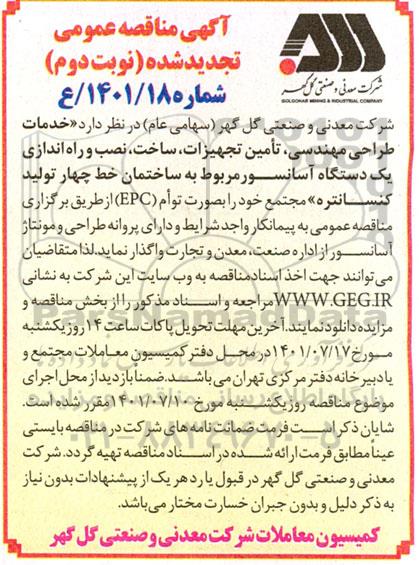 آگهی مناقصه عمومی
تجدیدشده (نوبت دوم)
شماره ۱۴۰۱/۱۸/ع
شرکت معدنی و صنعتی گل گهر
GOLGOHAR MINING & INDUSTRIAL COMPANY
شرکت معدنی و صنعتی گل گهر (سهامی عام) در نظر دارد «خدمات
طراحی مهندسی، تأمین تجهیزات، ساخت، نصب و راه اندازی
یک دستگاه آسانسور مربوط به ساختمان خط چهار تولید
کنسانتره» مجتمع خود را بصورت توأم (EPC) از طریق برگزاری
مناقصه عمومی به پیمانکار واجد شرایط و دارای پروانه طراحی و مونتاژ
آسانسور از اداره صنعت، معدن و تجارت واگذار نماید. لذا متقاضیان
می توانند جهت اخذ اسناد مناقصه به وب سایت این شرکت به نشانی
WWW.GEG.IR مراجعه و اسناد مذکور را از بخش مناقصه و
مزایده دانلود نمایند. آخرین مهلت تحویل پاکات ساعت ۱۴ روز یکشنبه
مورخ ۱۴۰۱/۰۷/۱۷ در محل دفتر کمیسیون معاملات مجتمع و
یا دبیرخانه دفتر مرکزی تهران می باشد. ضمنا بازدید از محل اجرای
موضوع مناقصه روز یکشنبه مورخ ۱۴۰۱/۰۷/۱۰ مقرر شده است.
شایان ذکر است فرمت ضمانت نامه های شرکت در مناقصه بایستی
عیناً مطابق فرمت ارائه شده در اسناد مناقصه تهیه گردد. شرکت
معدنی و صنعتی گل گهر در قبول یا رد هر یک از پیشنهادات بدون نیاز
به ذکر دلیل و بدون جبران خسارت مختار می باشد.
کمیسیون معاملات شرکت معدنی و صنعتی گل گهر
۰۲۱-۸۸۳۴۹۶۷۰-۵